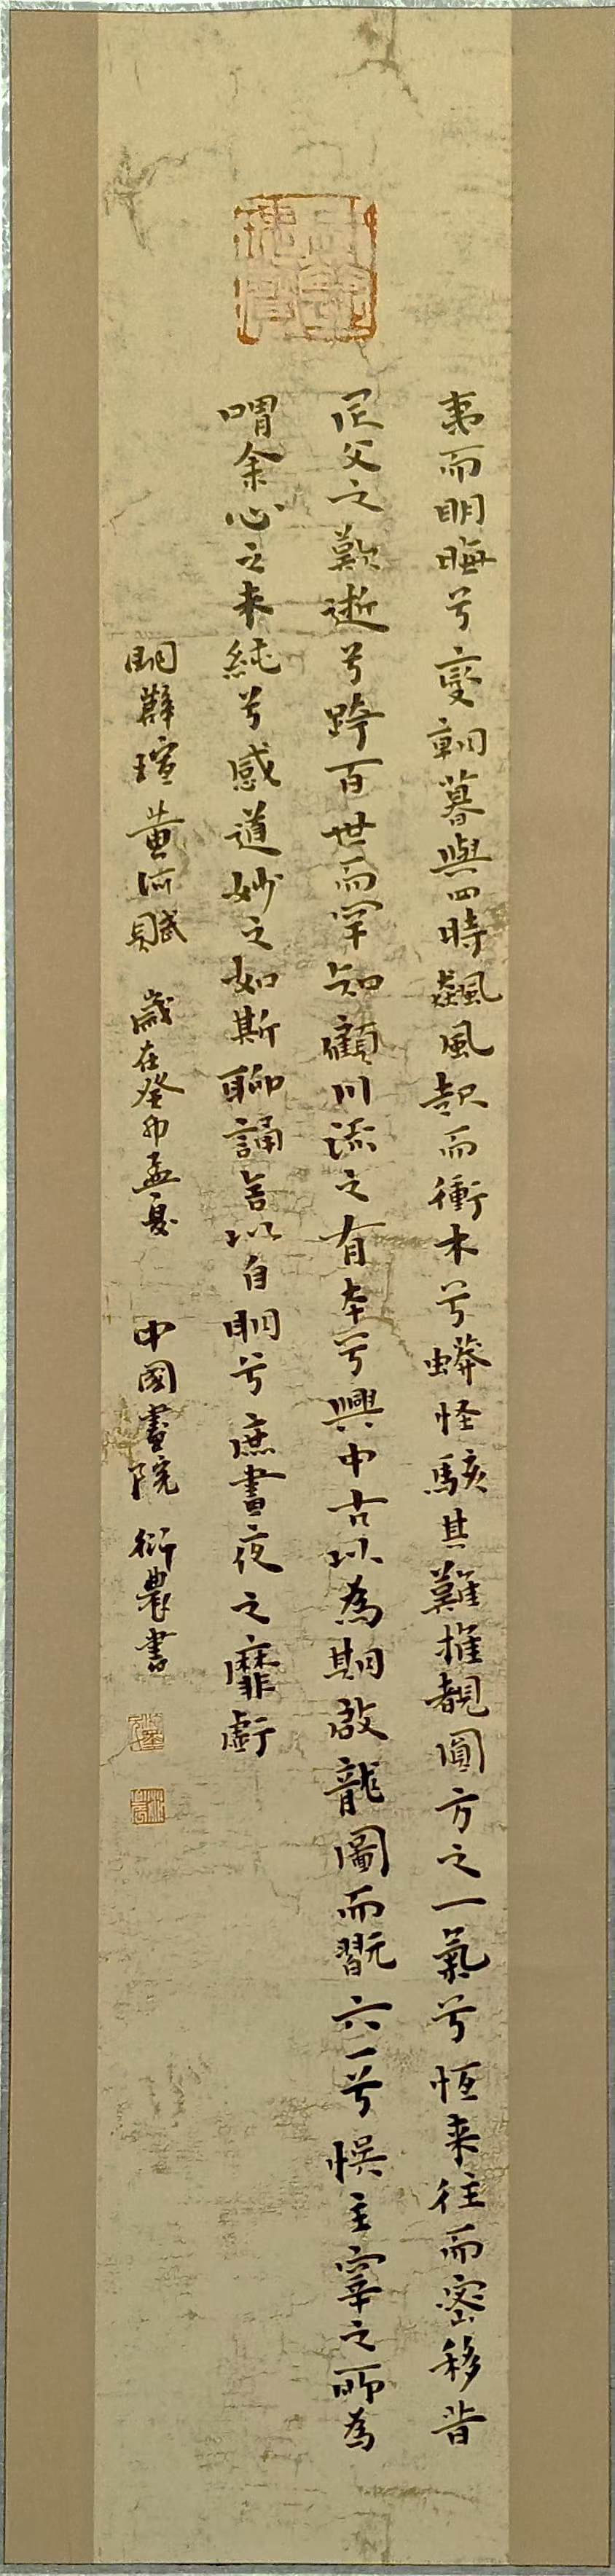 夷而明晦兮變朝暮與四時飆風起而衝木兮蟒怪駭其難推覩圓方之一氣兮恆来往而密移昔
尼父之歎逝兮跨百世而罕知顧川流之有本兮興中古以為期啟龍圖而翫六一兮悞主宰之所為
喟余心之未純兮感道妙之如斯聊誦言以自明兮庶晝夜之靡虧
明薛瑄黄河賦 歲在癸卯孟夏 中國畫院 衍農書